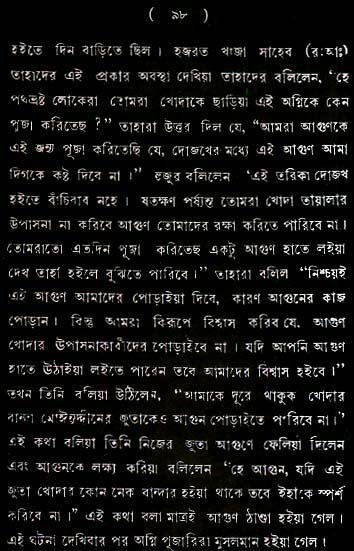 ( ৯৮ )
হইতে দিন বাড়িতে ছিল। হজরত খাজা সাহেব (রঃআঃ)
তাহাদের এই প্রকার অবস্থা দেখিয়া তাহাদের বলিলেন, 'হে
পথভ্রষ্ট লোকেরা তোমরা খোদাকে ছাড়িয়া এই অগ্নিকে কেন
পূজা করিতেছ ?" তাহারা উত্তর দিল যে, "আমরা আগুণকে
এই জন্য পূজা করিতেছি যে, দোজখের মধ্যে এই আগুণ আমা
দিগকে কষ্ট দিবে না।" হুজুর বলিলেন 'এই তরিকা দোজখ
হইতে বাঁচিবার নহে। যতক্ষণ পর্য্যন্ত তোমরা খোদা তায়ালার
উপাসনা না করিবে আগুণ তোমাদের রক্ষা করিতে পারিবে না।
তোমরাতো এতদিন পূজা করিতেছ একটু আগুণ হাতে লইয়া
দেখ তাহা হইলে বুঝিতে পারিবে।" তাহারা বলিল "নিশ্চয়ই
এই আগুণ আমাদের পোড়াইয়া দিবে, কারণ আগুনের কাজ
পোড়ান। কিন্তু আমরা কিরূপে বিশ্বাস করিব যে. আগুণ
খোদার উপাসনাকারীদের পোড়াইবে না। যদি আপনি আগুণ
হাতে ঊঠাইয়া লইতে পারেন তবে আমাদের বিশ্বাস হইবে।"
তখন তিনি বলিয়া উঠিলেন, "আমাকে দূরে থাকুক খোদার
বান্দা মোঈয়দ্দীনের জুতাকেও আগুন পোড়াইতে পারিবে না।'
এই কথা বলিয়া তিনি নিজের জুতা আগুণে ফেলিয়া দিলেন
এবং আগুনকে লক্ষ্য করিয়া বলিলেন "হে আগুন, যদি এই
জুতা খোদার কোন নেক বান্দার হইয়া থাকে তবে ইহাকে স্পর্শ
করিবে না।" এই কথা বলা মাত্রই আগুণ ঠাণ্ডা হইয়া গেল।
এই ঘটনা দেখিবার পর অগ্নি পূজারিরা মুসলমান হইয়া গেল।